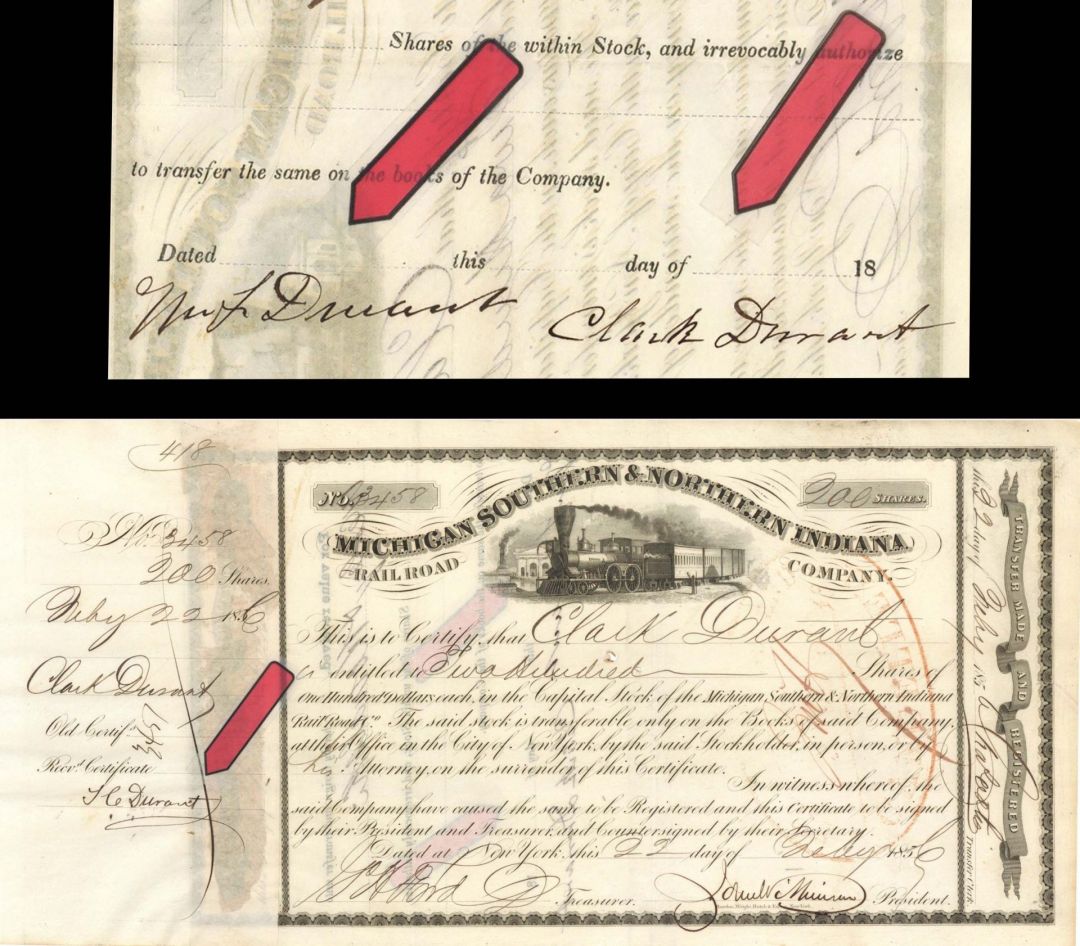 Shares of the within Stock, and irrevocably authorize
to transfer the same on the books of the Company.
Dated this day of 18
Durant Clark Durant
418
No. 3458
200 Shares.
Feby 22 1856
Clark Durant
Old Certif.
Recvd. Certificate
T C Durant
No. 3458
200 SHARES.
MICHIGAN SOUTHERN & NORTHERN INDIANA
RAILROAD COMPANY.
This is to Certify, that Clark Durant
is entitled to Two Hundred Shares of
One Hundred Dollars each, in the Capital Stock of the Michigan Southern & Northern Indiana
Rail Road Co. The said stock is transferable only on the Books of said Company,
at their Office in the City of New York, by the said Stockholder, in person, or by
his Attorney, on the surrender of this Certificate.
In witness whereof, the
said Company have caused the same to be Registered and this Certificate to be signed
by their President and Treasurer, and Countersigned by their Secretary.
Dated at New York, this 22 day of Feby 1856
Treasurer. President.
TRANSFER MADE AND REGISTERED
this 22 day of Feby 1856
Transfer Clerk.